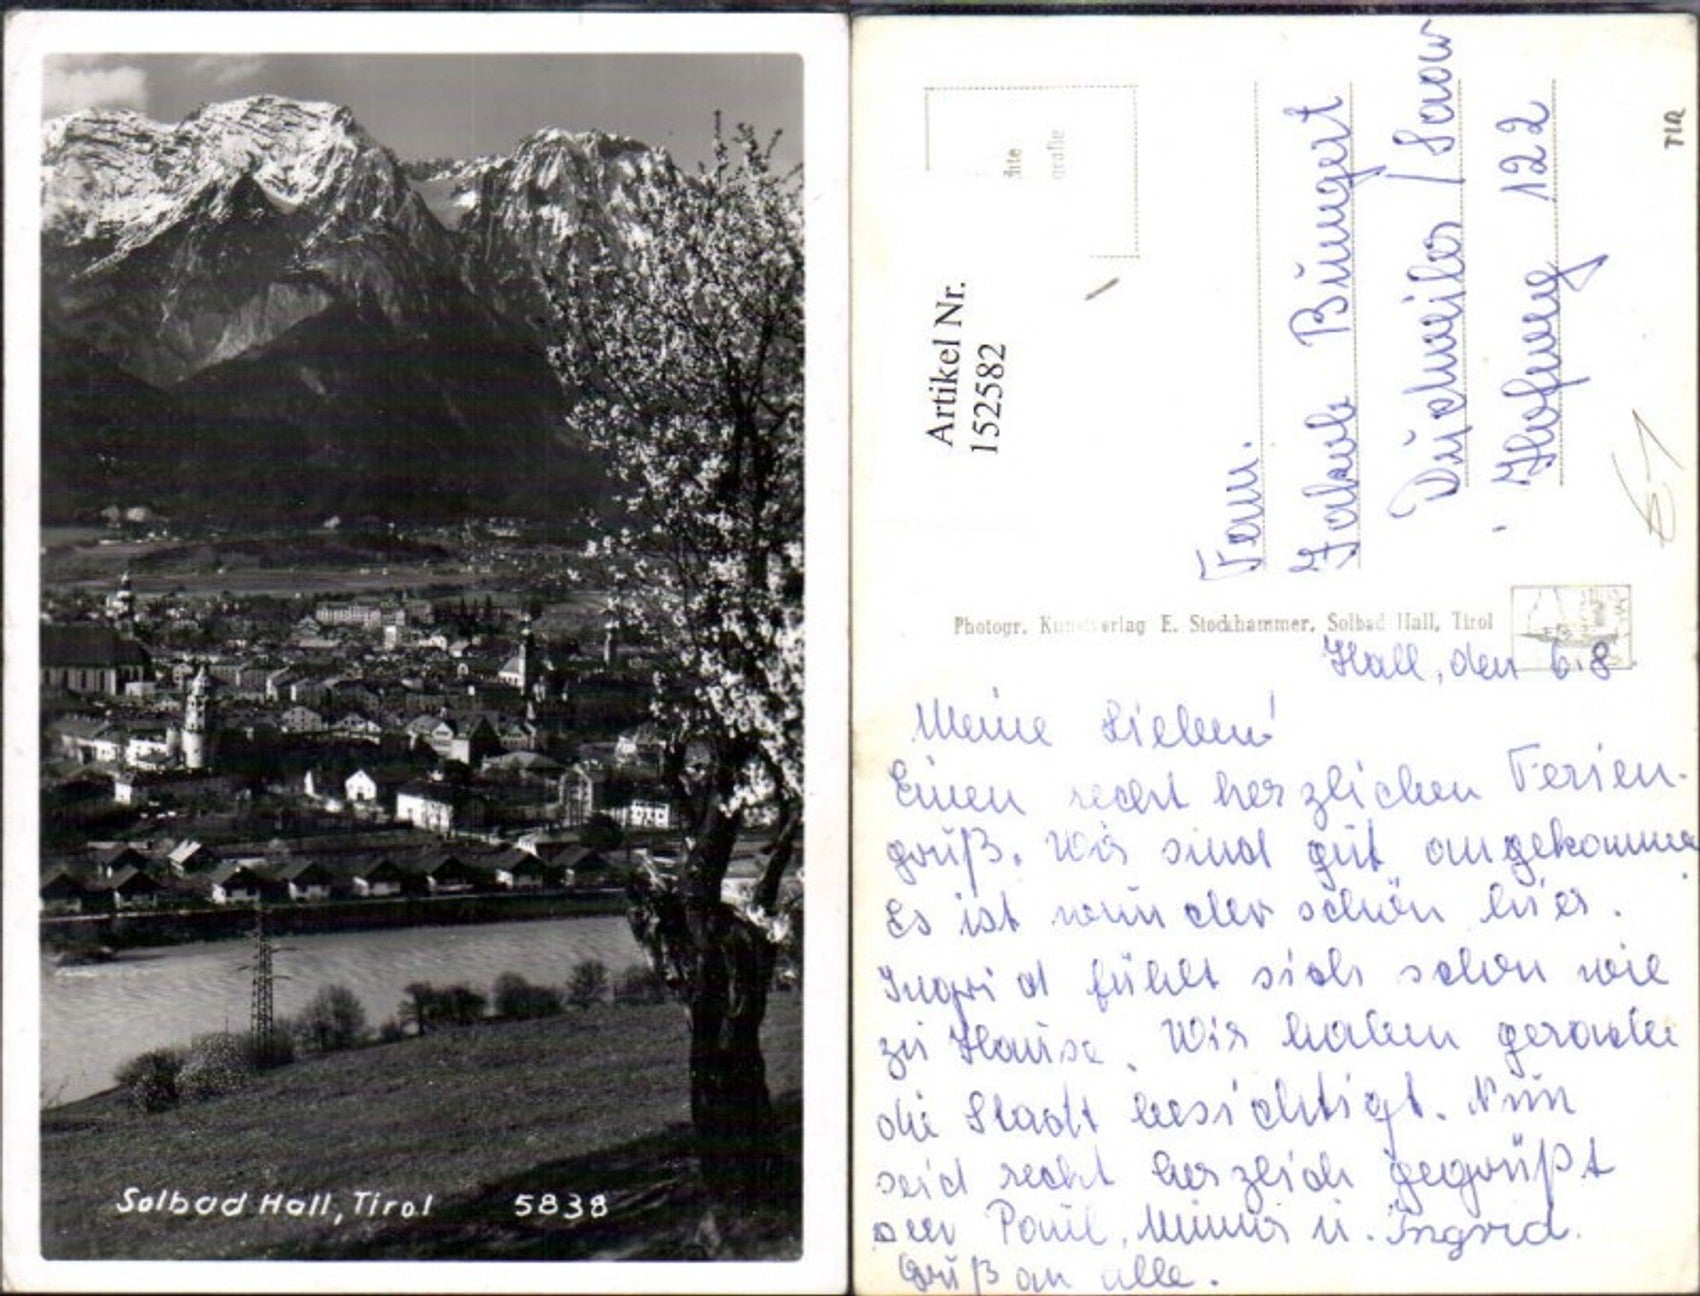 Solbad Hall, Tirol 5838
Artikel Nr.
152582
Fam.
Jakob Büngert
Dudweiler / Saar
Hofweg 122
TIR
Photogr. Kunstverlag E. Stockhammer, Solbad Hall, Tirol
Hall, den 6.8.
Meine Lieben!
Einen recht herzlichen Ferien-
gruß. Wir sind gut angekommen
Es ist wunderschön hier.
Ingrid fühlt sich schon wie
zu Hause. Wir haben gerade
die Stadt besichtigt. Nun
seid recht herzlich gegrüßt
Paul, u. Ingrid.
Gruß an alle.